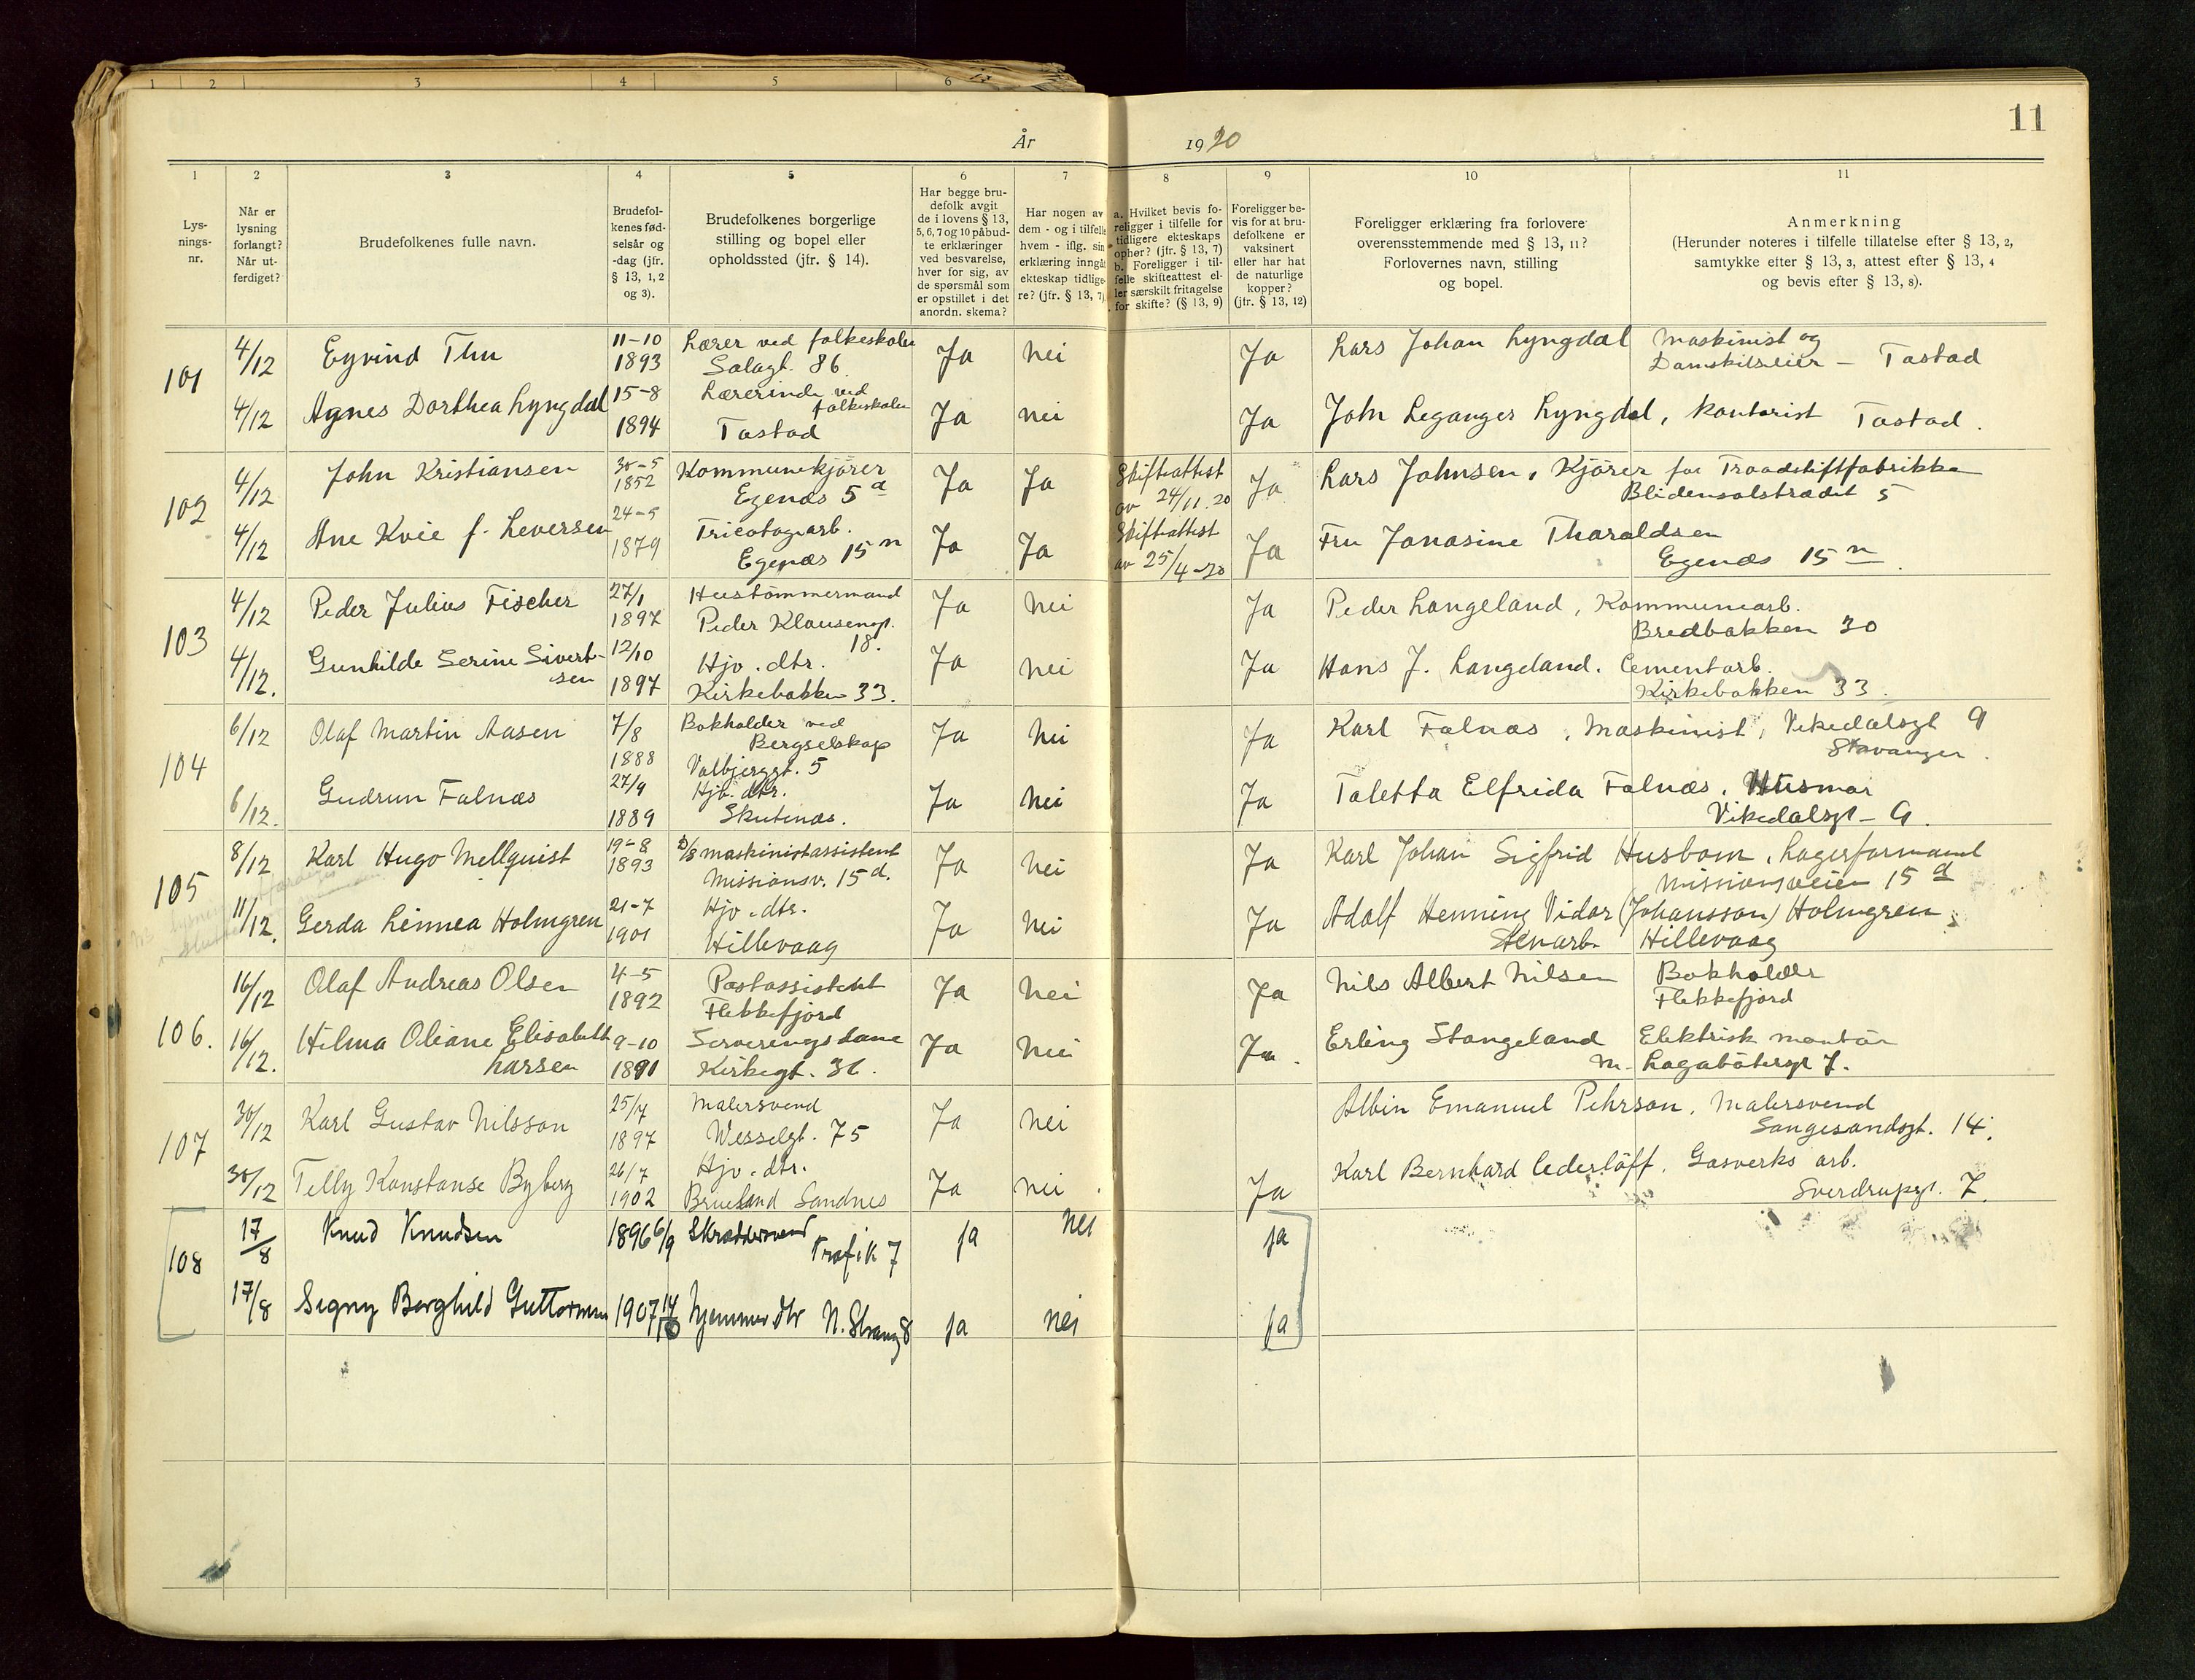 11
År 1920
1 2 3 4 5 6 7 8 9 10 11
Lys-
nings-
nr.
Når er
lysning
forlangt?
Når ut-
ferdiget?
Brudefolkenes fulle navn.
Brudefol-
kenes fød-
selsår og
-dag (jfr.
§ 13, 1, 2
og 3).
Brudefolkenes borgerlige
stilling og bopel eller
opholdssted (jfr. § 14).
Har begge bru-
defolk avgit
de i lovens § 13,
5, 6, 7 og 10 påbud-
te erklæringer
ved besvarelse,
hver for sig, av
de spørsmål som
er opstillet i det
anordn. skema?
Har nogen av
dem - og i tilfelle
hvem - iflg. sin
erklæring inngåt
ekteskap tidlige-
re? (jfr. § 13, 7)
a. Hvilket bevis fo-
religger i tilfelle for
tidligere ekteskaps
ophør? (jfr. § 13, 7)
b. Foreligger i til-
felle skifteattest el-
ler særskilt fritagelse
for skifte? (§ 13, 9)
Foreligger be-
vis for at bru-
defolkene er
vaksinert
eller har hat
de naturlige
kopper?
(jfr. § 13, 12)
Foreligger erklæring fra forlovere
overensstemmende med § 13, 11?
Forlovernes navn, stilling
og bopel.
Anmerkning
(Herunder noteres i tilfelle tillatelse efter § 13, 2,
samtykke efter § 13, 3, attest efter § 13, 4
og bevis efter § 13, 8).
101
4/12 Eyvind Thu 11-10 1893 Lærer ved folkeskolen
Solagt. 86 Ja Nei Ja Lars Johan Lyngdal Maskinist og
Damskibseier - Tastad
4/12 Agnes Dorthea Lyngdal 15-8 1894 Lærerinde ved
folkeskolen
Tastad Ja Nei Ja John Leganger Lyngdal, kontorist Tastad.
102
4/12 John Kristiansen 30-5 1852 Kommunekjører
Egenæs 5 a Ja Ja Skifteattest
av 24/11.20 Ja Lars Johnsen, Kjører for Traadstiftfabrikken
Blidensolstrædet 5
4/12 Ane Kvie f. Leversen 24-5 1879 Tricotagearb.
Egenæs 15 n Ja Ja Skifteattest
av 25/4-20 Ja Fru Jonasine Tharaldsen
Egenæs 15 n.
103
4/12 Peder Julius Fischer 27/1 1897 Hustømmermand
Peder Klausensgt.
18. Ja Nei Ja Peder Langeland, Kommunearb.
Bredbakken 30
4/12. Gunhilde Serine Sivert-
sen 12/10 1897 Hjv. dtr.
Kirkebakken 33. Ja Nei Ja Hans J. Langeland. Cementarb.
Kirkebakken 33.
104
6/12 Olaf Martin Aasen 7/8 1888 Bokholder ved
Bergselskap
Valbjerggt. 5 Ja Nei Ja Karl Falnæs, Maskinist, Vikedalsgt 9
Stavanger.
6/12. Gudrun Falnæs 27/9 1889 Hjv. dtr.
Skutenæs. Ja Nei Ja Taletta Elfrida Falnæs. Husmor
Vikedalsgt - 9.
105
8/12 Karl Hugo Mellquist 19-8 1893 D/S maskinistassistent
Missionsv. 15 d. Ja Nei Ja Karl Johan Sigfrid Husbom, Lagerformand
Missionsveien 15 d
11/12. Gerda Linnea Holmgren 21-7 1901 Hjv. dtr.
Hillevaag Ja Nei Ja Adolf Henning Vidar (Johansson) Holmgren
Stenarb. Hillevaag
106.
16/12 Olaf Andreas Olsen 4-5 1892 Postassistent
Flekkefjord Ja Nei Ja Nils Albert Nilsen Bokholder
Flekkefjord
16/12. Hilma Oliane Elisabeth
Larsen 9-10 1891 Serveringsdame
Kirkegt. 36. Ja Nei Ja. Erling Stangeland Elektrisk montør
M. Lagabøtersgt 7.
107
30/12 Karl Gustav Nilsson 25/7 1897 Malersvend
Wesselgt. 75 Ja Nei Albin Emanuel Pehrson, Malersvend
Sangesandsgt. 14.
30/12 Telly Konstanse Byberg 26/7 1902 Hjv. dtr.
Brueland Sandnes Ja Nei Ja Karl Bernhard Cederlöff. Gasverks arb.
Sverdrupsgt. 7.
108
17/8 Knud Knudsen 1896 6/9 Skræddersvend
Trafik 7 ja Nei ja
17/8 Signy Borghild Guttormsen 1907 hjemmev. dtr N. Strang 8 ja nei ja